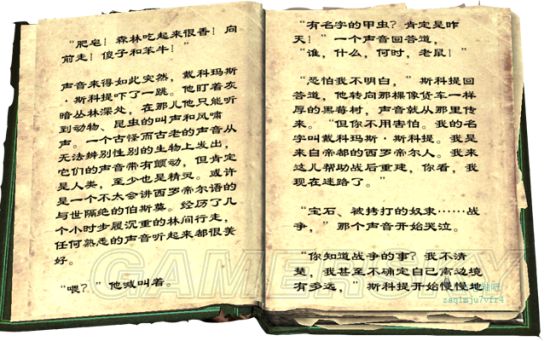 “肥皂！森林吃起来很香！向
前走！傻子和笨牛！”
声音来得如此突然，戴科玛斯
·斯科提吓了一跳。他盯着灰
暗丛林深处，在那儿他只能听
到动物、昆虫的叫声和风嘯
声。一个古怪而古老的声音从
无法辨别性别的生物上发出，
它们的声音带有颤动，但肯定
是人类，至少也是精灵。或许
是一个不太会讲西罗帝尔语的
与世隔绝的伯斯蓦。经历了几
个小时步履沉重的林间行走，
任何熟悉的声音听起来都很美
好。
“喂？”他喊叫着。
“有名字的甲虫？肯定是昨
天！”一个声音回答道，
“谁，什么，何时，老鼠！”
“恐怕我不明白，”斯科提回
答道，他转向那棵像货车一样
厚的黑莓树，声音就从那里传
来。“但你不用害怕。我的名
字叫戴科玛斯·斯科提。我是
来自帝都的西罗帝尔人。我来
这儿帮助战后重建，你看，我
现在迷路了。”
“宝石、被拷打的奴隶……战
争，”那个声音开始哭泣。
“你知道战争的事？我不清
楚，我甚至不确定自己离边境
有多远，”斯科提开始慢慢地
GAMERSKY
zaqimju7vfr4